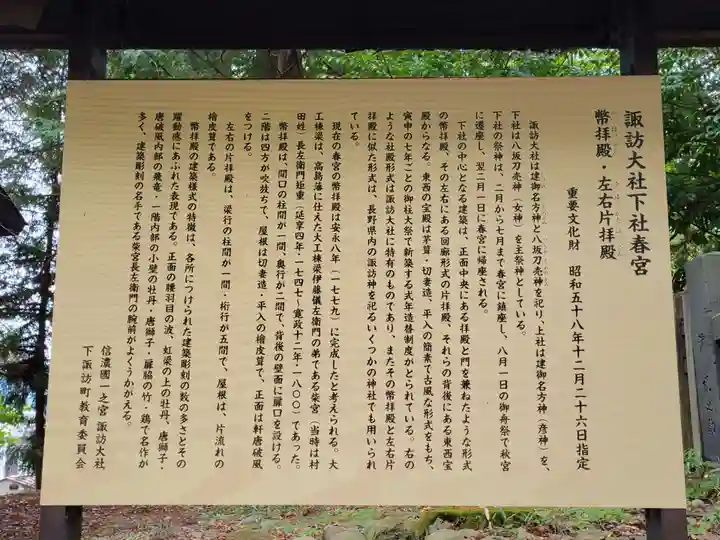 諏訪大社下社春宮
幣拝殿・左右片拝殿
重要文化財　昭和五十八年十二月二十六日指定
諏訪大社は建御名方神と八坂刀売神を祀り、上社は建御名方神（彦神）を、
下社は八坂刀売神（女神）を主祭神としている。
下社の祭神は、二月から七月まで春宮に鎮座し、八月一日の御舟祭で秋宮
に遷座し、翌二月一日に春宮に帰座される。
下社の中心となる建築は、正面中央にある拝殿と門を兼ねたような形式
の幣拝殿、その左右にある回廊形式の片拝殿、それらの背後にある東西宝
殿からなる。東西の宝殿は茅葺・切妻造、平入の簡素で古風な形式をもち、
寅申の七年ごとの御柱大祭で新築する式年造替制度がとられている。右の
ような社殿形式は諏訪大社に特有のものであり、またその幣拝殿と左右片
拝殿に似た形式は、長野県内の諏訪神を祀るいくつかの神社でも用いられ
ている。
現在の春宮の幣拝殿は安永八年（一七七九）に完成したと考えられる。大
工棟梁は、高島藩に仕えた大工棟梁伊藤儀左衛門の弟である柴宮（当時は村
田姓）長左衛門矩重（延享四年・一七四七～寛政十二年・一八〇〇）であった。
幣拝殿は、間口の柱間が一間、奥行が二間で、背後の壁面に扉口を設ける。
二階は四方が吹放ちで、屋根は切妻造・平入の檜皮葺で、正面は軒唐破風
をつける。
左右の片拝殿は、梁行の柱間が一間・桁行が五間で、屋根は、片流れの
檜皮葺である。
幣拝殿の建築様式の特徴は、各所につけられた建築彫刻の数の多さとその
躍動感にあふれた表現である。正面の腰羽目の波、虹梁の上の牡丹、唐獅子・
唐破風内部の飛竜・一階内部の小壁の牡丹・唐獅子・扉脇の竹・鶏で名作が
多く、建築彫刻の名手である柴宮長左衛門の腕前がよくうかがえる。
信濃國一之宮 諏訪大社
下諏訪町教育委員会